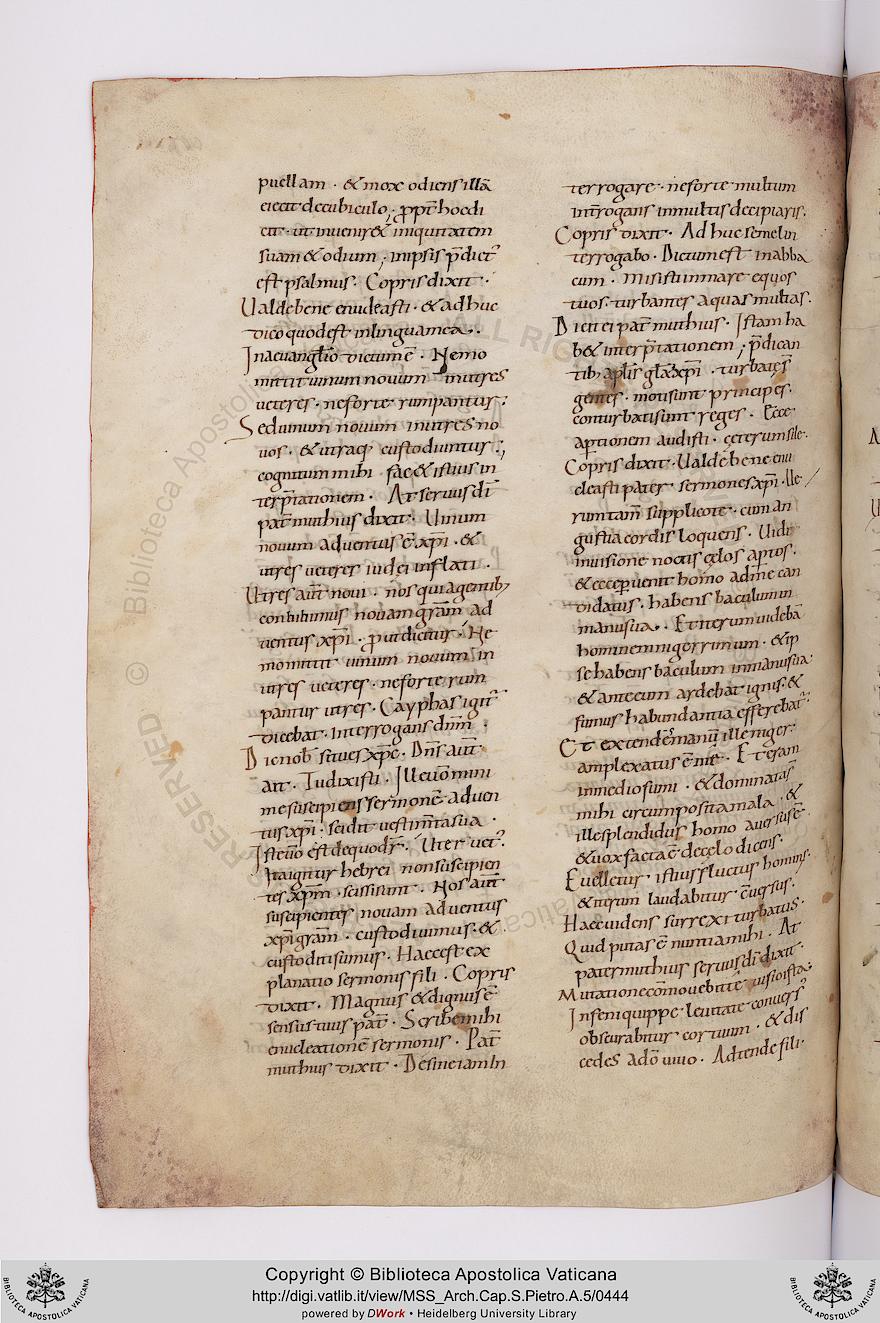 puellam · & mox odiens illā
eiecit de cubiculo; ꝓpt̄ hoc di
cit · ut invenir& iniquitatem
suam & odium; in ipsis p̄dict᷒
est psalmus · Copris dixit ·
Ualde bene enucleasti · & adhuc
dico quod est in lingua mea ·
In aevangłio dictum ē · Nemo
mittit uinum novum in utres
veteres · ne forte rumpantur;
Sed uinum novum in utres no
vos · & utraq; custodiuntur;
cognitum mihi fac & istius in
terp̄tationem · At servus dī
pat̄ muthius dixit · Uinum
novum adventus ē xp̄i · &
utres veteres iudei inflati ·
Utres aut̄ novi · nos qui agentib;
conbibimus novam gr̄am ad
ventus xp̄i · ꝓut dicitur · Ne
mo mittit uinum novum in
utres veteres · ne forte rum
pantur utres · Cayphas igit᷒
dicebat · Interrogans dn̄m ·
Dic nob̄ si tu es xp̄c · Dn̄s aut̄
ait · Tu dixisti · Ille vō mini
me suscipiens sermonē adven
tus xp̄i · scidit vestim̄ta sua ·
Iste vō est de quo dr̄ · Uter vet᷒ ·
Ita igitur hebrei non suscipien
tes xp̄m · scissi sunt · Nos aut̄
suscipientes novam adventus
xp̄i gr̄am · custodivimus · &
custoditi sumus · Haec est ex
planatio sermonis fili · Copris
dixit · Magnus & dignus ē
sensus tuus pat̄ · Scribe mihi
enucleationē sermonis · Pat̄
muthius dixit · Desine iam In
terrogare · ne forte multum
int̄rogans in multis decipiaris ·
Copris dixit · Adhuc semel in
terrogabo · Dictum est in abba
cum · Misisti in mare equos
tuos · turbantes aquas multas ·
Dicit ei pat̄ muthius · Istam ha
b& interp̄tationem; p̄dican
tib; apl̄is gl̄ā xp̄i · turbatȩ s̄
gentes · moti sunt principes ·
conturbati sunt reges · Ecce
aptionem audisti · ceterum sile ·
Copris dixit · Ualde bene enu
cleasti pater · sermones xp̄i · Ue
rum tam̄ supplico te · cum an
gustia cordis loquens · Uidi
in visione noctis cȩlos aptos ·
& ecce ꝑvenit homo ad me can
didatus · habens baculum in
manu sua · Et iterum videbā
hominem nigerrimum · & ip
se habens baculum in manu sua ·
& ante eum ardebat ignis · &
fumus habundantia efferebat᷒ ·
Et extendēs manū ille niger ·
amplexatus ē me · Et eram
in medio fumi · & dominatus
mihi circumposita mala · &
ille splendidus homo aversus ē ·
& vox facta ē de cȩlo dicens ·
Evelletur istius fluctus hominis ·
& iterum laudabitur ēversus ·
Haec videns surrexi turbatus ·
Quid putas ē nuntia mihi · At
pater muthius servus dī dixit ·
Mutatione cōmovebit te visio ista ·
In seniqui ppe levitate convers᷒
obscurabitur cor tuum · & dis
cedes a dō vivo · Adtende fili ·
Copyright © Biblioteca Apostolica Vaticana
http://digi.vatlib.it/view/MSS_Arch.Cap.S.Pietro.A.5/0444
powered by DWork • Heidelberg University Library